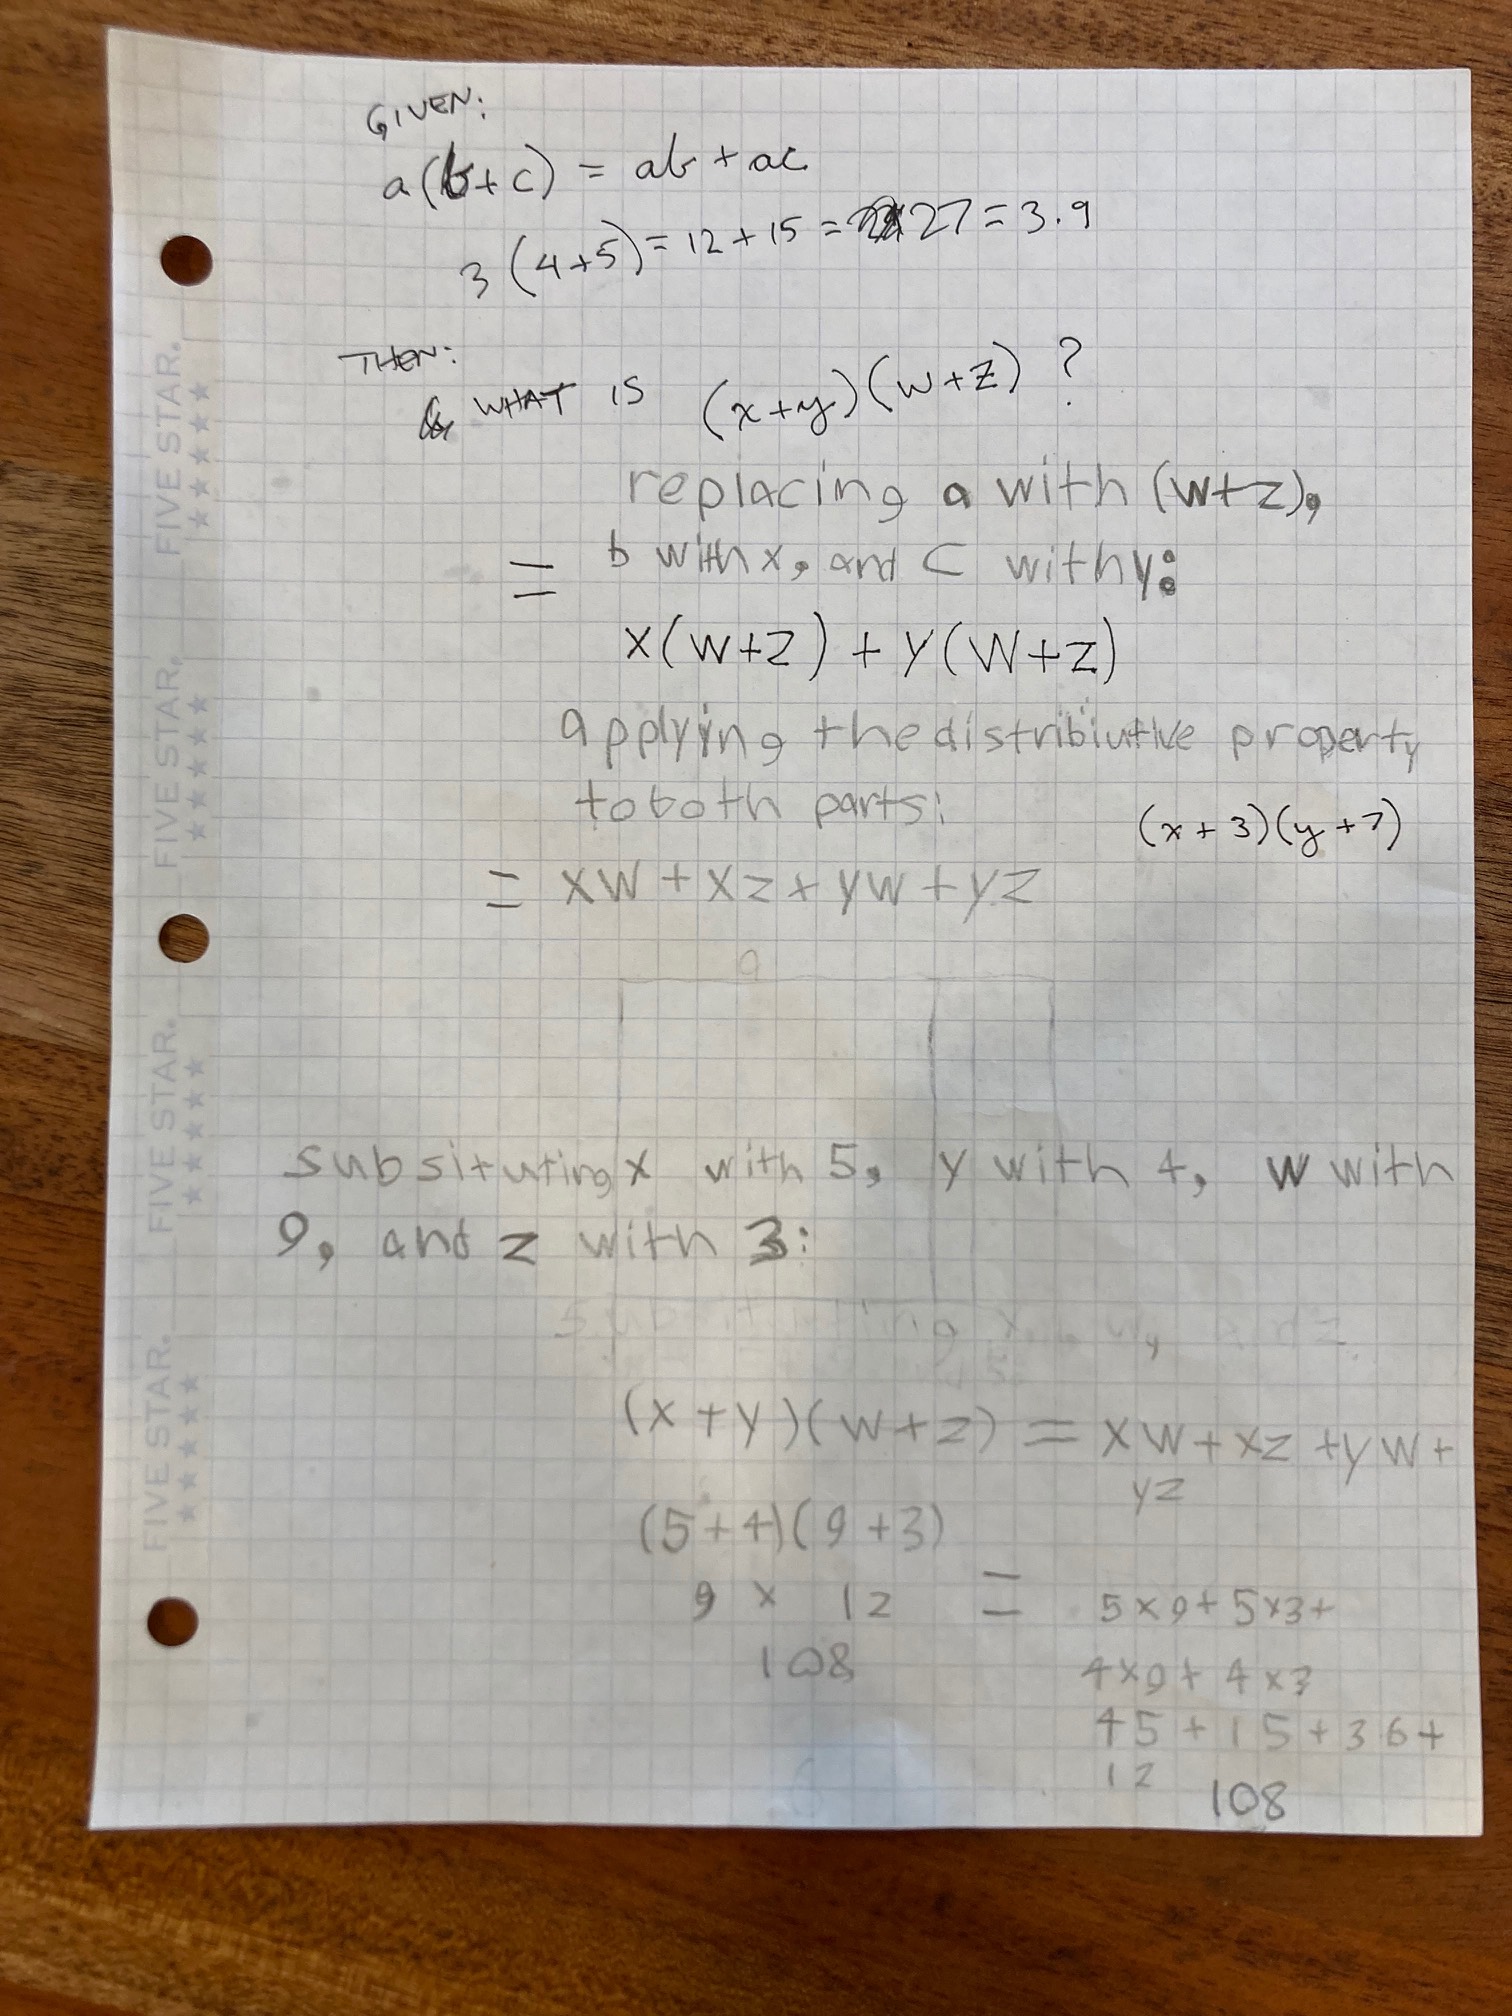 GIVEN:
a(b+c) = ab + ac
3(4+5) = 12 + 15 = 27 = 3.9
THEN:
WHAT IS (x+y)(w+z) ?
replacing a with (w+z),
= b with x, and c with y:
x(w+z) + y(w+z)
applying the distribiutive property
to both parts:
(x+3)(y+7)
= xw + xz + yw + yz
a
subsituting x with 5, y with 4, w with
9, and z with 3:
(x+y)(w+z) = xw + xz + yw +
yz
(5+4)(9+3)
9 x 12 = 5x9 + 5x3 +
108
4x9 + 4x3
45 + 15 + 36 +
12 108
FIVE STAR.
★★★★★
FIVE STAR.
★★★★★
FIVE STAR.
★★★★★
FIVE STAR.
★★★★★